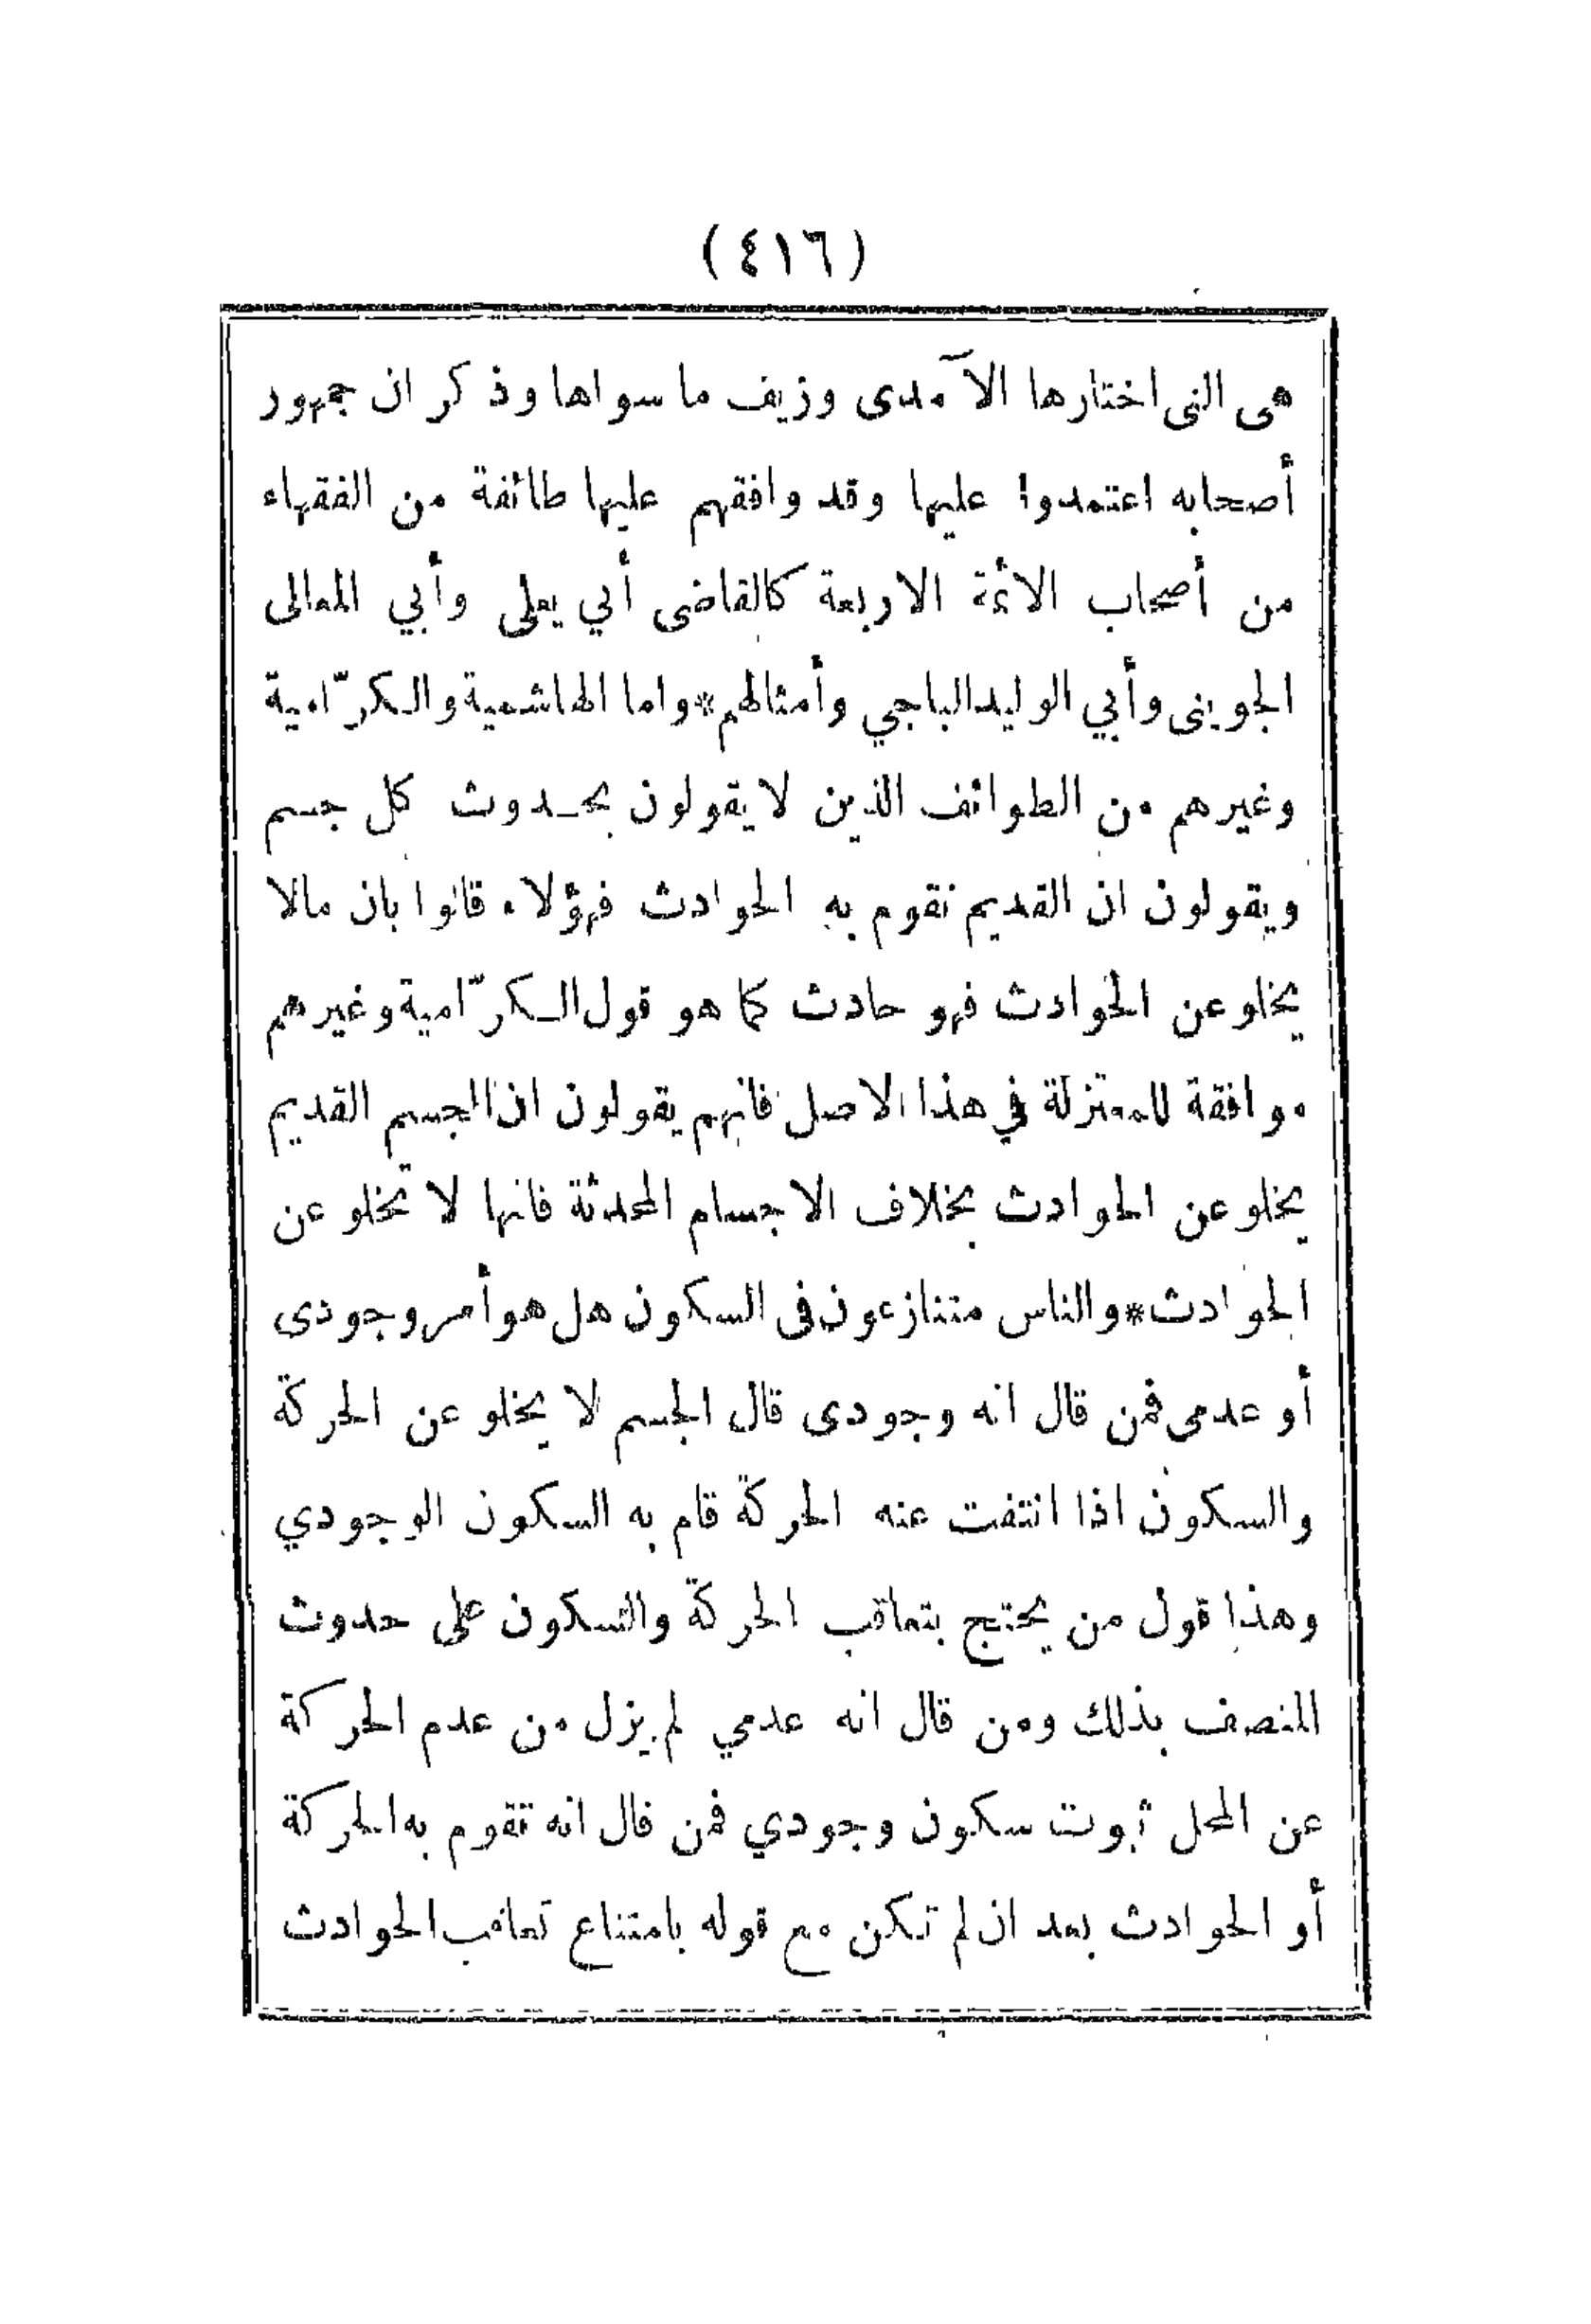 (٤١٦)
هى التى اختارها الآمدى وزيف ما سواها وذكر ان جمهور
أصحابه اعتمدوا عليها وقد وافقهم عليها طائفة من الفقهاء
من أصحاب الائمة الاربعة كالقاضى أبي يعلى وأبي المعالى
الجوينى وأبي الوليد الباجي وأمثالهم*واما الهاشمية والكرّامية
وغيرهم من الطوائف الذين لا يقولون بحدوث كل جسم
ويقولون ان القديم تقوم به الحوادث فهؤلاء قالوا بان مالا
يخلو عن الحوادث فهو حادث كما هو قول الكرّامية وغيرهم
موافقة للمعتزلة في هذا الاصل فانهم يقولون ان الجسم القديم
يخلو عن الحوادث بخلاف الاجسام المحدثة فانها لا تخلو عن
الحوادث*والناس متنازعون فى السكون هل هو أمر وجودى
أو عدمى فمن قال انه وجودى قال الجسم لا يخلو عن الحركة
والسكون اذا انتفت عنه الحركة قام به السكون الوجودي
وهذا قول من يحتج بتعاقب الحركة والسكون على حدوث
المتصف بذلك ومن قال انه عدمي لم يزل من عدم الحركة
عن المحل ثبوت سكون وجودي فمن قال انه تقوم به الحركة
أو الحوادث بعد ان لم تكن مع قوله بامتناع تعاقب الحوادث